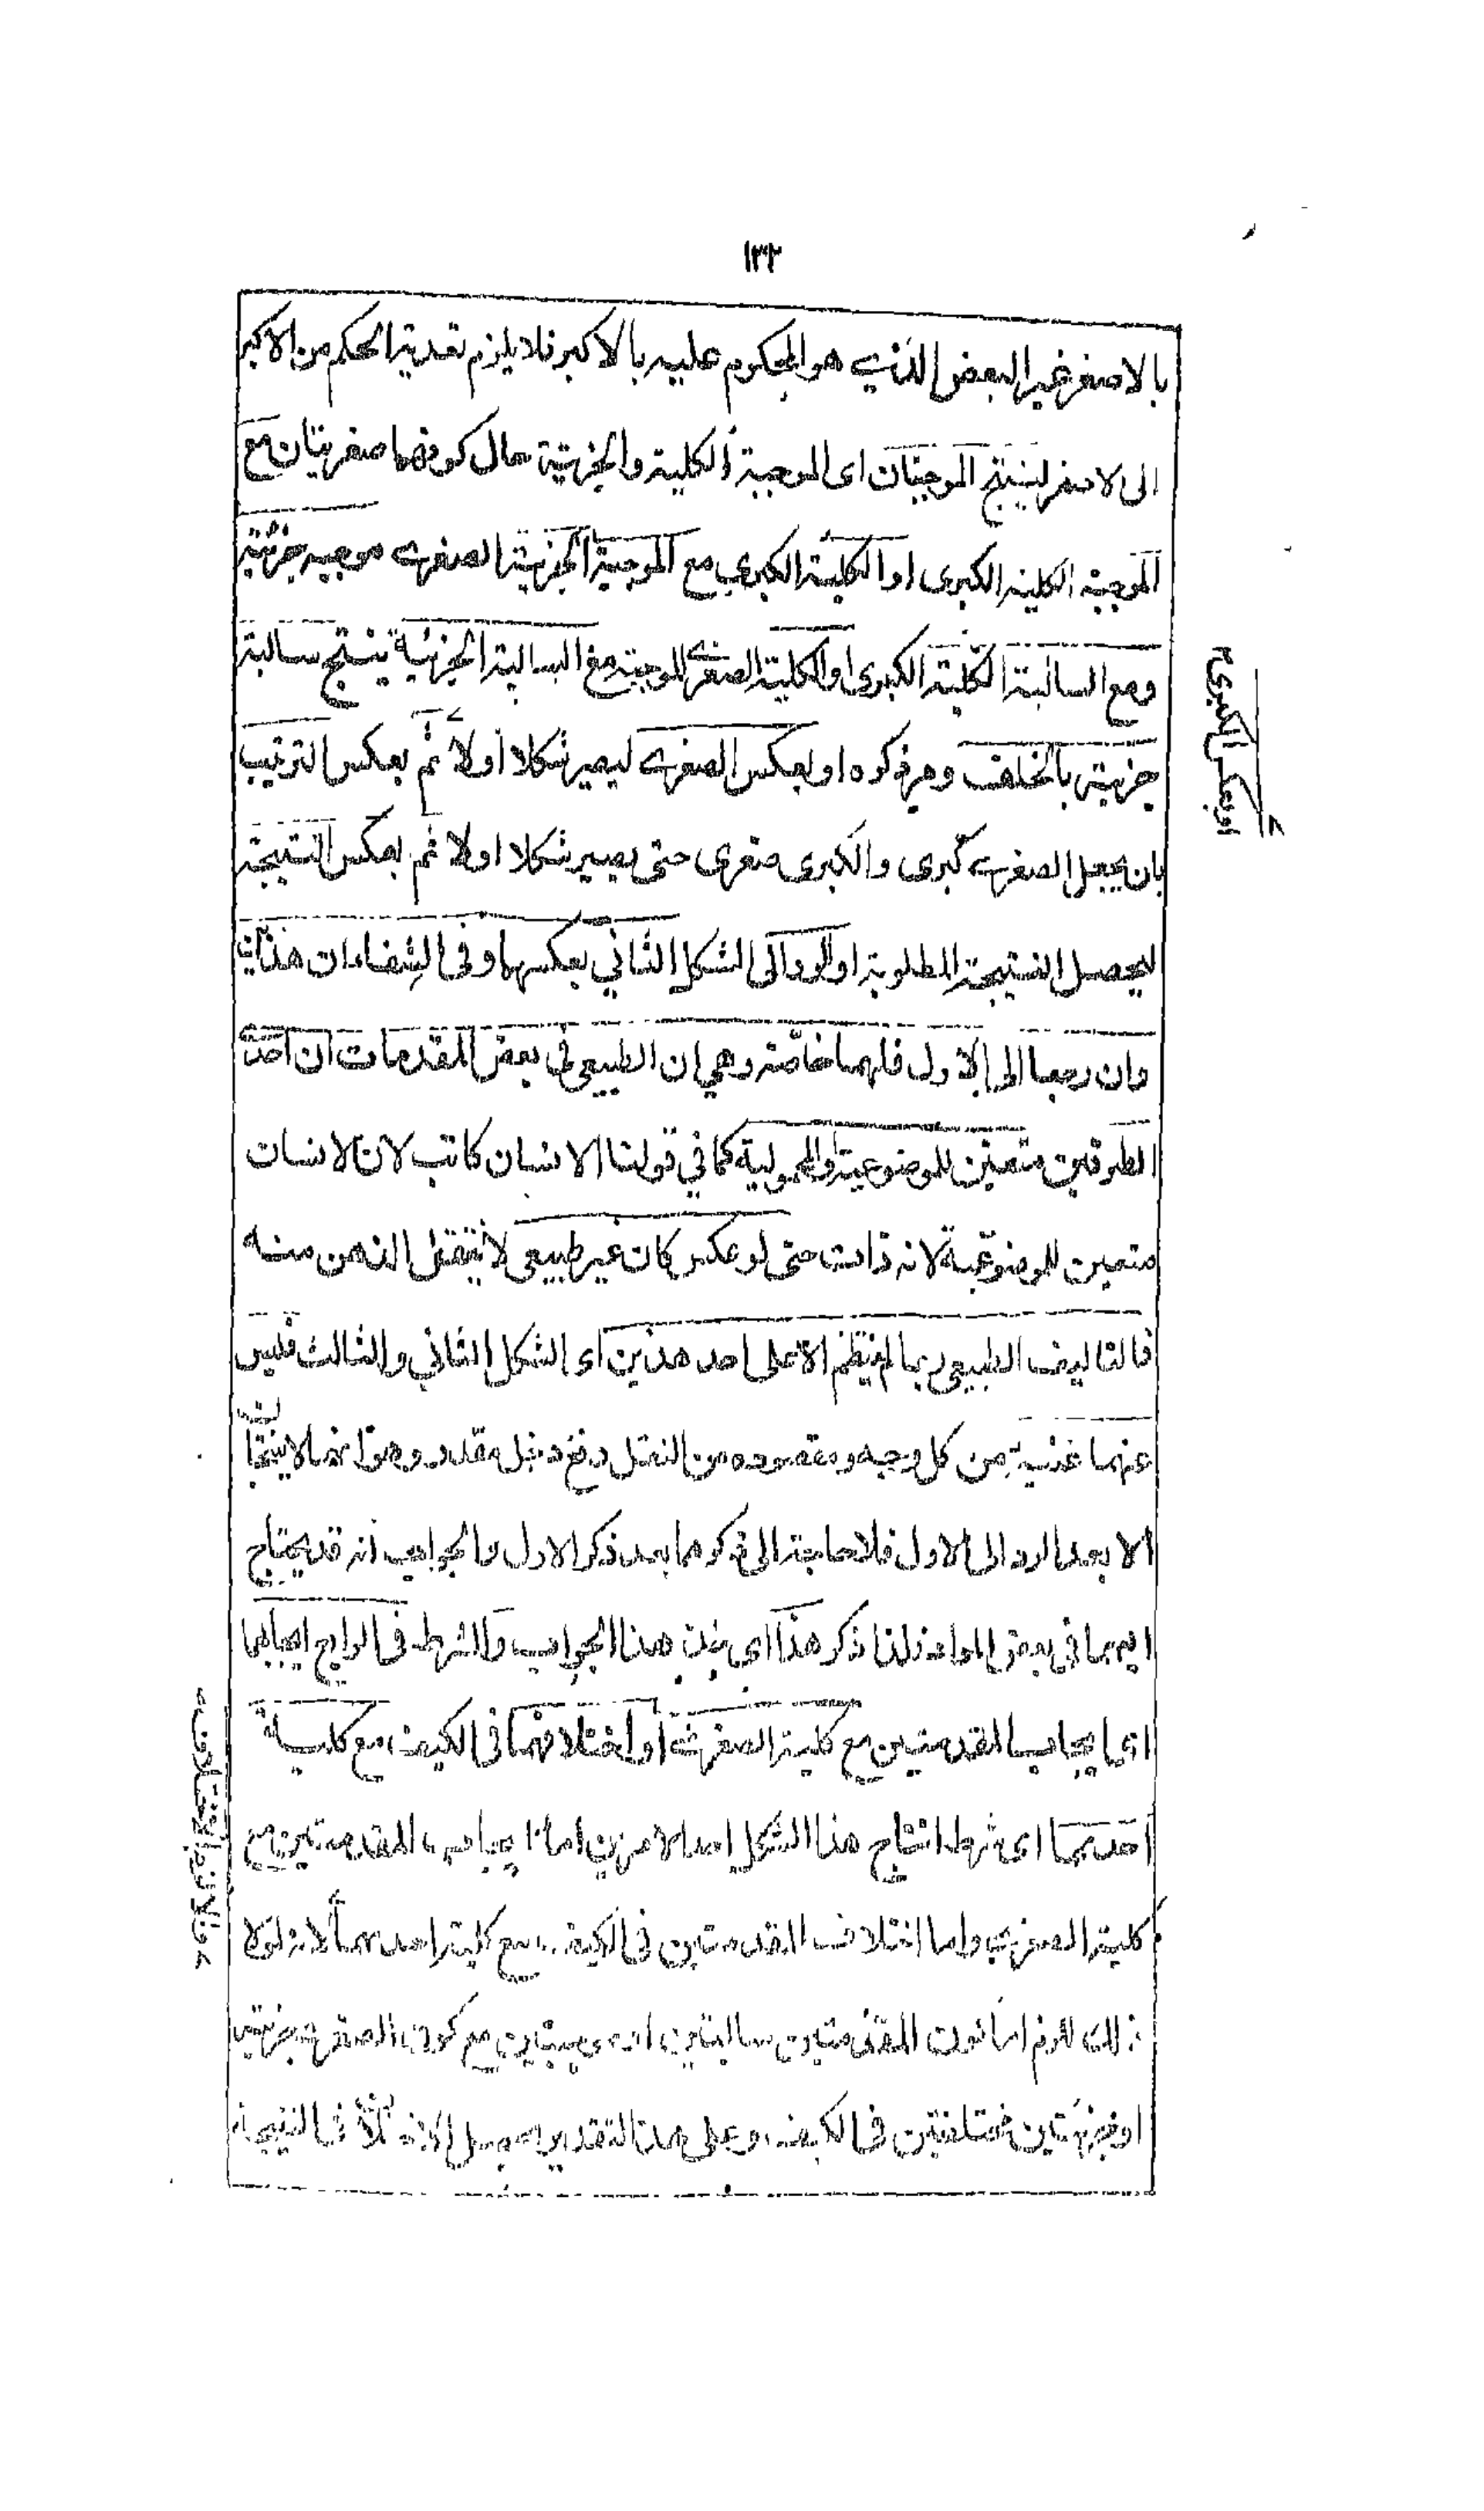 ١٣٢
بالاصغر غير البعض الذي هو المحكوم عليه بالاكبر فلا يلزم تعدية الحكم من الاكبر
الى الاصغر لينتج الموجبتان اى الموجبة الكلية والجزئية حال كونهما صغريتان مع
الموجبة الكلية الكبرى او الكلية الكبرى مع الموجبة الجزئية الصغرى موجبة جزئية
ومع السالبة الكلية الكبرى او الكلية الصغرى الموجبة مع السالبة الجزئية ينتج سالبة
جزئية بالخلف وهو كوه او بعكس الصغرى ليصير شكلا اولا ثم بعكس الترتيب
او بعكس الكبرى
بان يجعل الصغرى كبرى والكبرى صغرى حتى يصير شكلا اولا ثم بعكس النتيجة
ليحصل النتيجة المطلوبة او الرد الى الشكل الثاني بعكسهما وفي الشفاء ان هذين
وان رجعا الى الاول فلهما خاصة وهي ان الطبيعى في بعض المقدمات ان احد
الطرفين متعين للموضوعية والمحمولية كما في قولنا الانسان كاتب لان الانسان
متعين للموضوعية لانه ذات حتى لو عكس كان غير طبيعى لا ينتقل الذهن منه
فالتاليف الطبيعى ربما لم ينتظم الا على احد هذين اى الشكل الثاني والثالث فليس
عنهما غنية من كل وجه ومقصوده من النقل دفع دخل مقدر وهو انهما لا ينتجا
الا بعد الرد الى الاول فلا حاجة الى ذكرهما بعد ذكر الاول فالجواب انه قد يحتاج
اليهما في بعض المواد لذا ذكر هذا اى خذ هذا الجواب والشرط في الرابع ايجابهما
اى ايجاب المقدمتين مع كلية الصغرى او اختلافهما في الكيف مع كلية
احدهما اى شرط انتاج هذا الشكل احد الامرين اما ايجاب المقدمتين مع
كلية الصغرى واما اختلاف المقدمتين في الكيف مع كلية احدهما لانه لولا
ذلك لزم اما كون المقدمتين سالبتين او موجبتين مع كون الصغرى جزئية
او جزئيتين مختلفتين في الكيف وعلى هذا التقدير يحصل الاختلاف في النتيجة